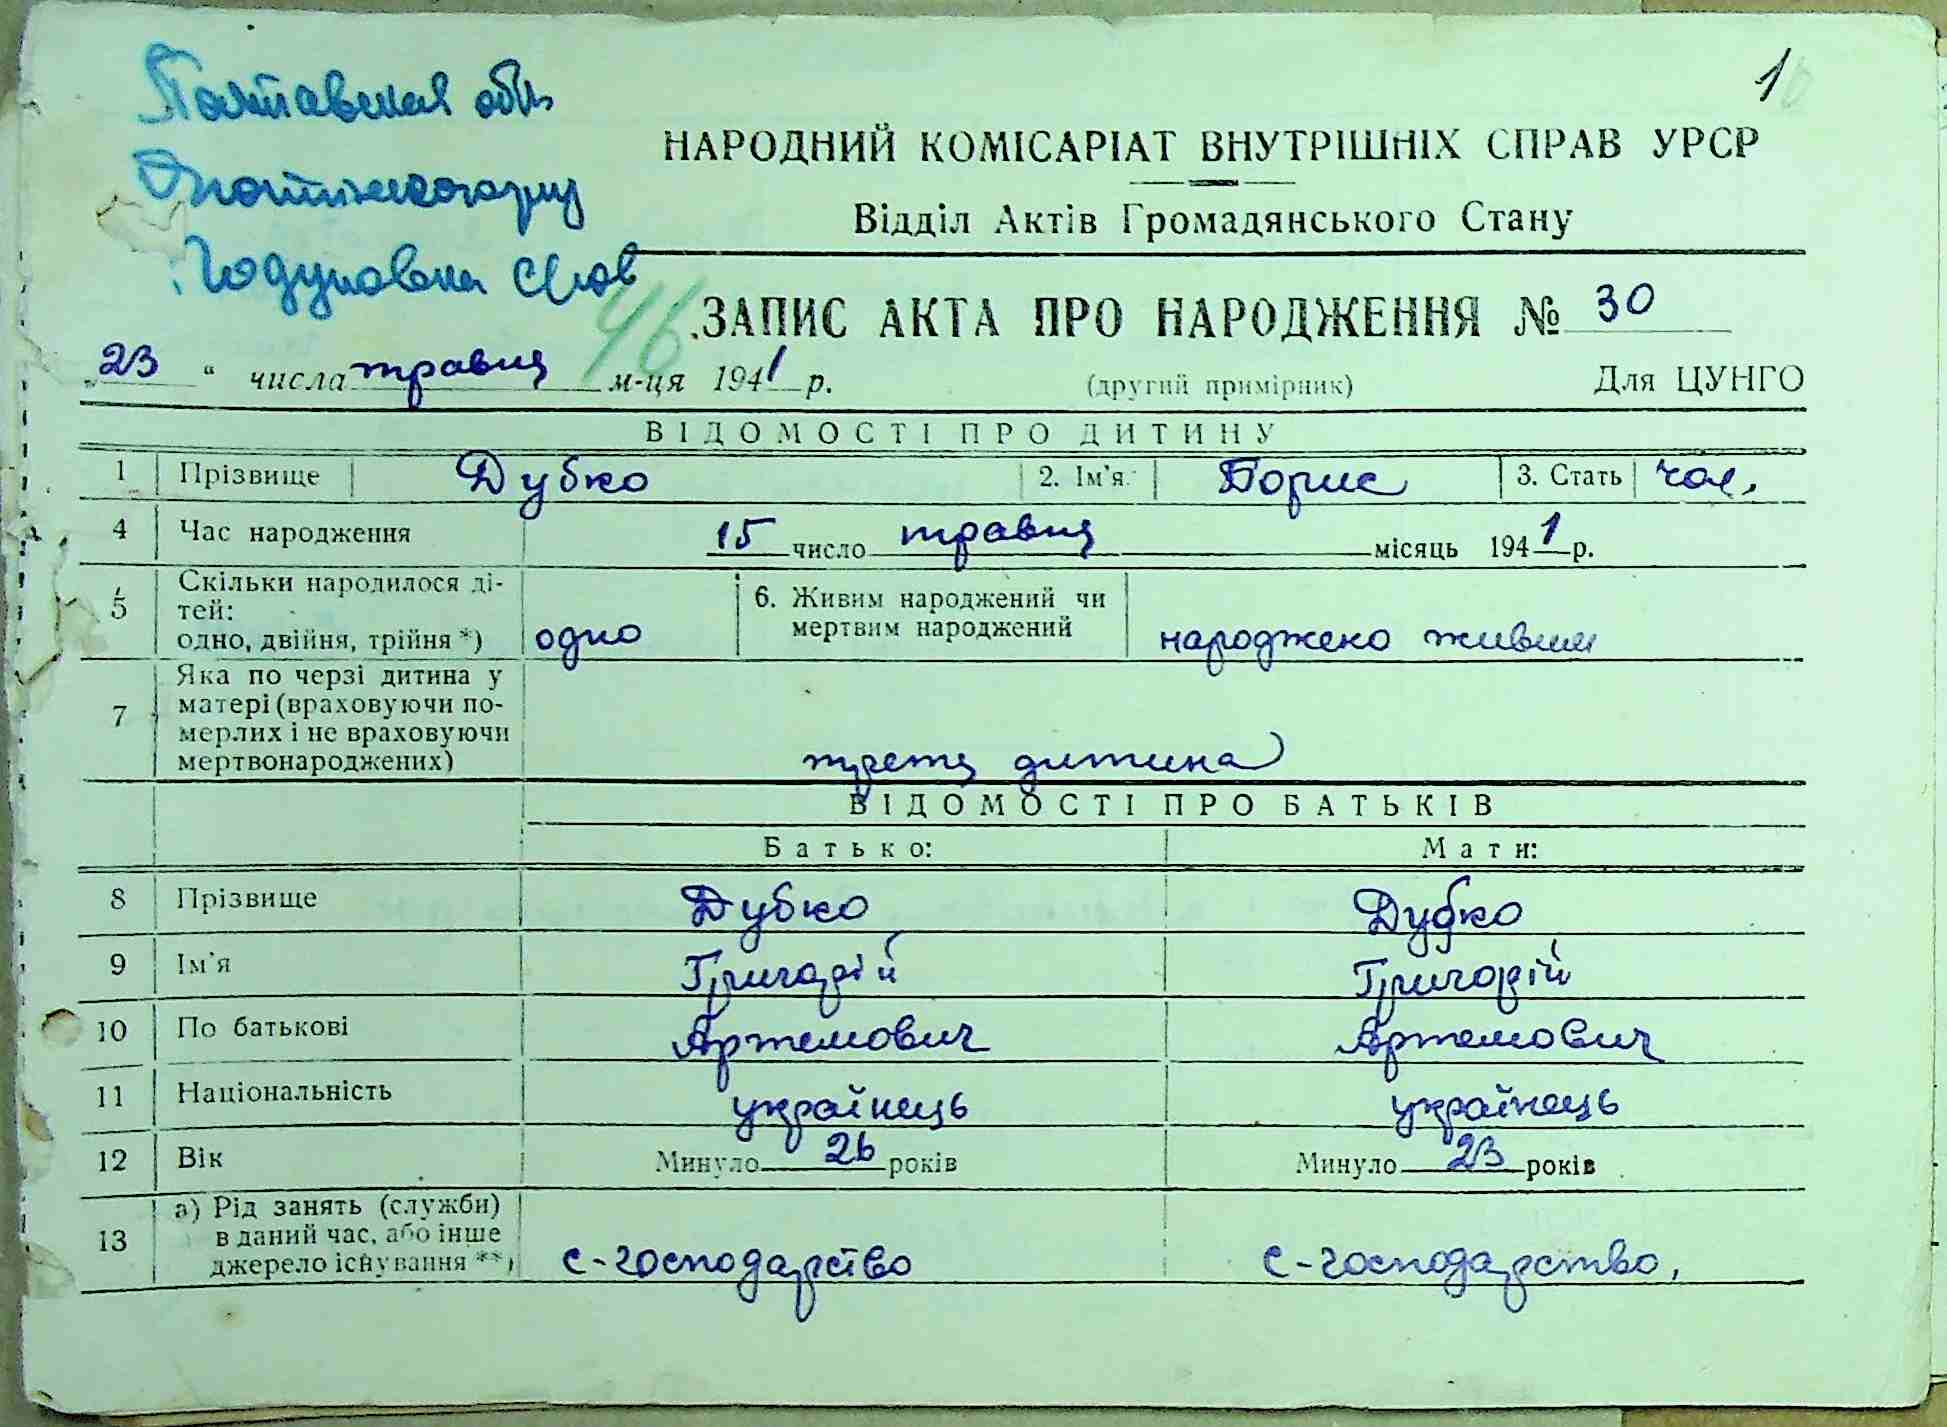 Полтавская обл
1
НАРОДНИЙ КОМІСАРІАТ ВНУТРІШНІХ СПРАВ УРСР
Відділ Актів Громадянського Стану
46
ЗАПИС АКТА ПРО НАРОДЖЕННЯ № 30
„23“ числа травня м-ця 1941 р. (другий примірник) Для ЦУНГО
ВІДОМОСТІ ПРО ДИТИНУ
1 Прізвище Дубко 2. Ім'я: Борис 3. Стать чол.
4 Час народження 15 число травня місяць 1941 р.
5 Скільки народилося ді-
тей:
одно, двійня, трійня *) одно 6. Живим народжений чи
мертвим народжений народжено живим
7 Яка по черзі дитина у
матері (враховуючи по-
мерлих і не враховуючи
мертвонароджених) третя дитина
ВІДОМОСТІ ПРО БАТЬКІВ
Батько: Мати:
8 Прізвище Дубко Дубко
9 Ім'я Григорій Григорій
10 По батькові Артемович Артемович
11 Національність українець українець
12 Вік Минуло 26 років Минуло 23 років
13 а) Рід занять (служби)
в даний час, або інше
джерело існування **) с-господарство с-господарство,